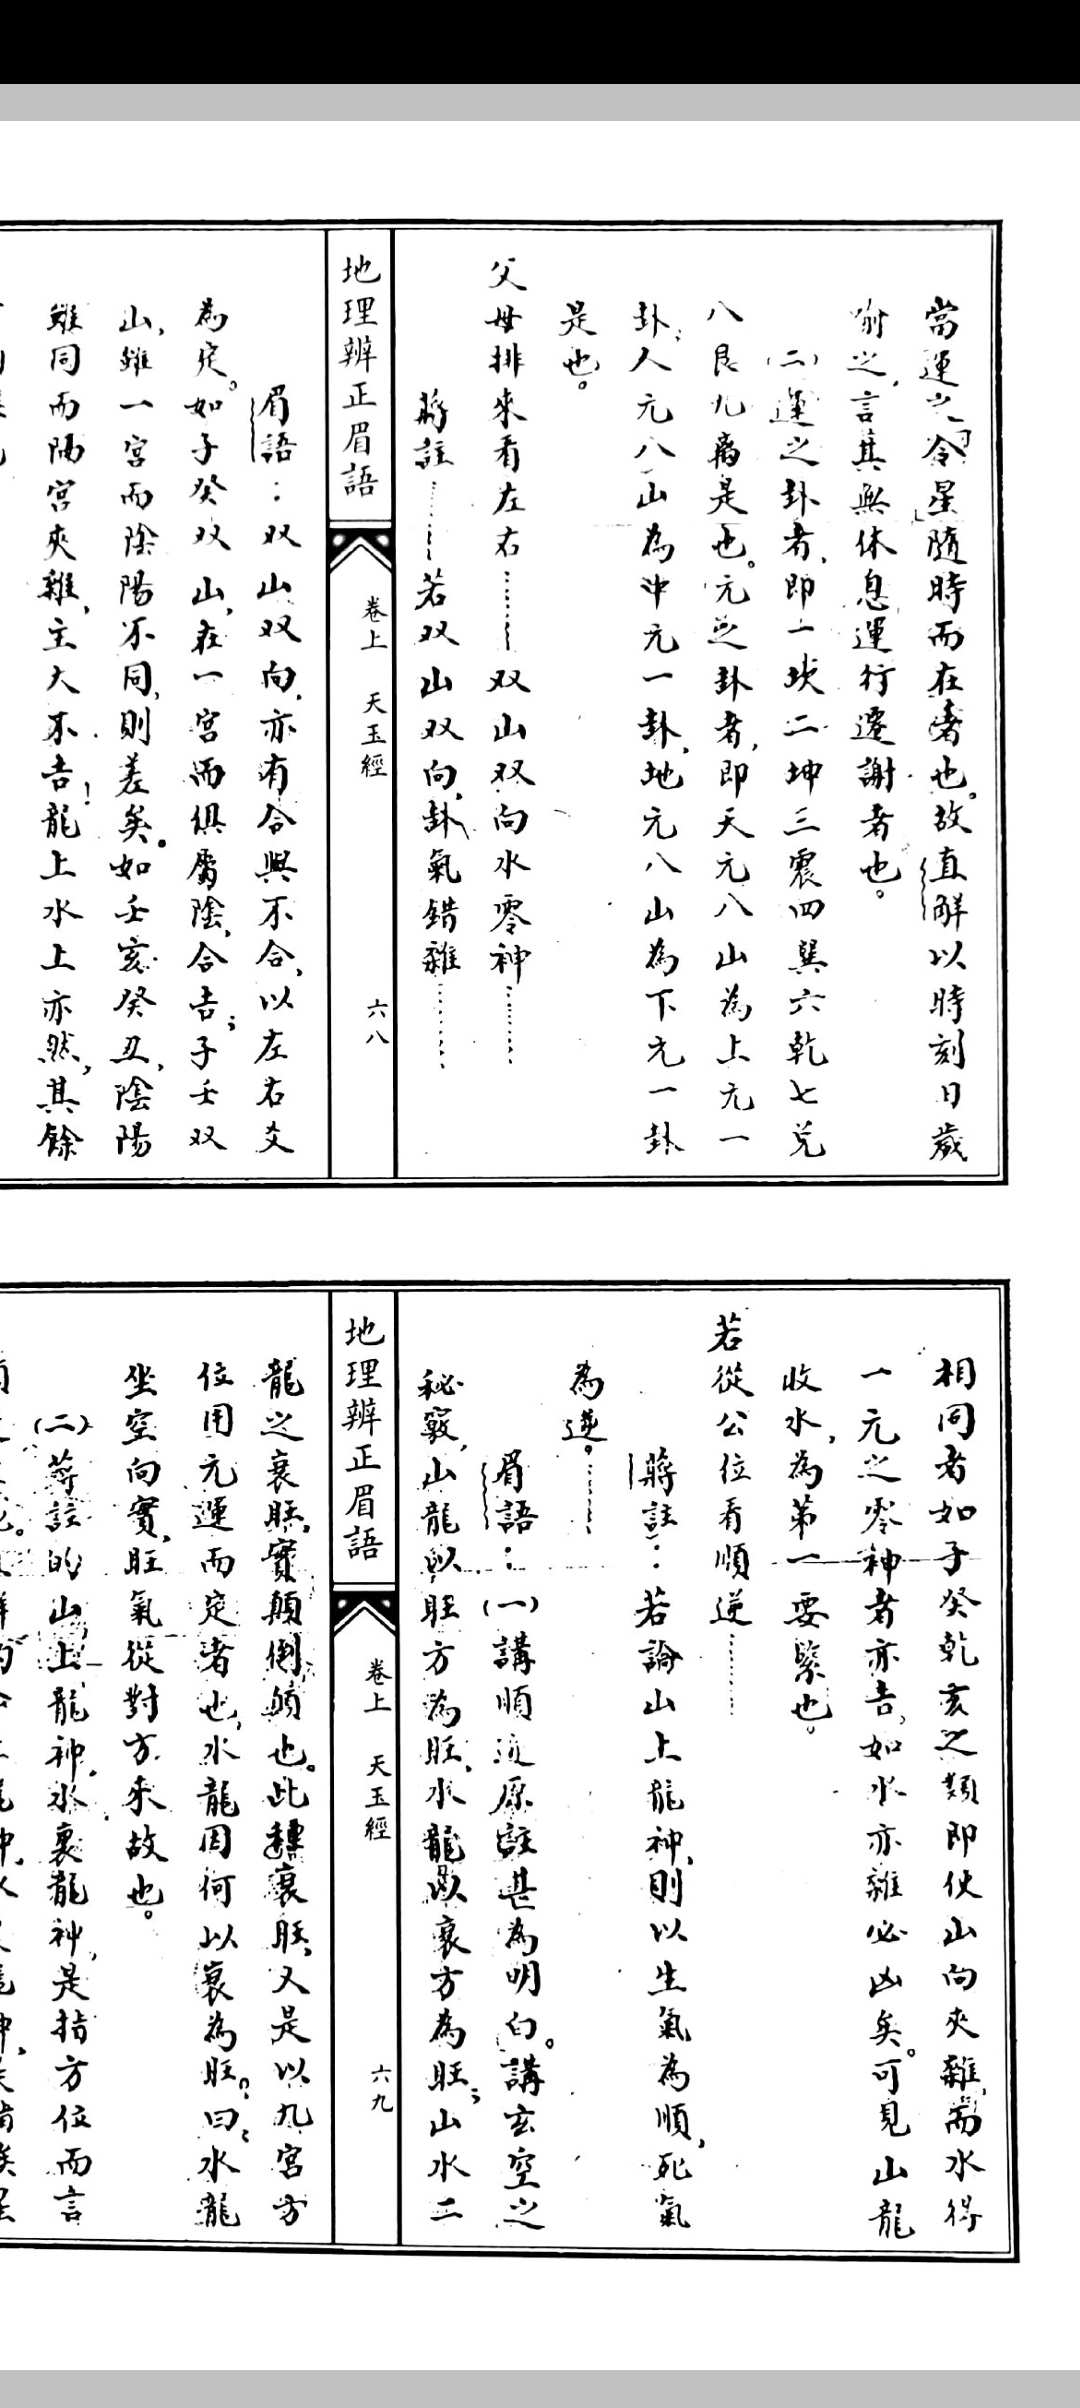 當運之令星隨時而在者也。故直解以時刻日歲
喻之,言其無休息運行遷謝者也。
(二)運之卦者,即一坎二坤三震四巽六乾七兌
八艮九離是也。元之卦者,即天元八山為上元一
卦;人元八山為中元一卦,地元八山為下元一卦
是也。
父母排來看左右……双山双向水零神……
蔣註……若双山双向,卦氣錯雜……
眉語:双山双向,亦有合與不合,以左右爻
為定。如子癸双山,在一宮而俱屬陰,合吉;子壬双
山,雖一宮而陰陽不同,則差矣。如壬亥癸丑,陰陽
雖同而隔宮夾雜,主大不吉!龍上水上亦然,其餘
地理辨正眉語
卷上 天玉經
六八
相同者如子癸乾亥之類即使山向夾雜,而水得
一元之零神者亦吉,如水亦雜必凶矣。可見山龍
收水,為第一要緊也。
若從公位看順逆……
蔣註:若論山上龍神,則以生氣為順,死氣
為逆。……
眉語:(一)講順逆原註甚為明白。講玄空之
秘竅,山龍以旺方為旺,水龍以衰方為旺;山水二
龍之衰旺,實顛倒顛也。此種衰旺,又是以九宮方
位用元運而定者也,水龍因何以衰為旺?曰:水龍
坐空向實,旺氣從對方來故也。
(二)蔣註的山上龍神,水裏龍神,是指方位而言
地理辨正眉語
卷上 天玉經
六九